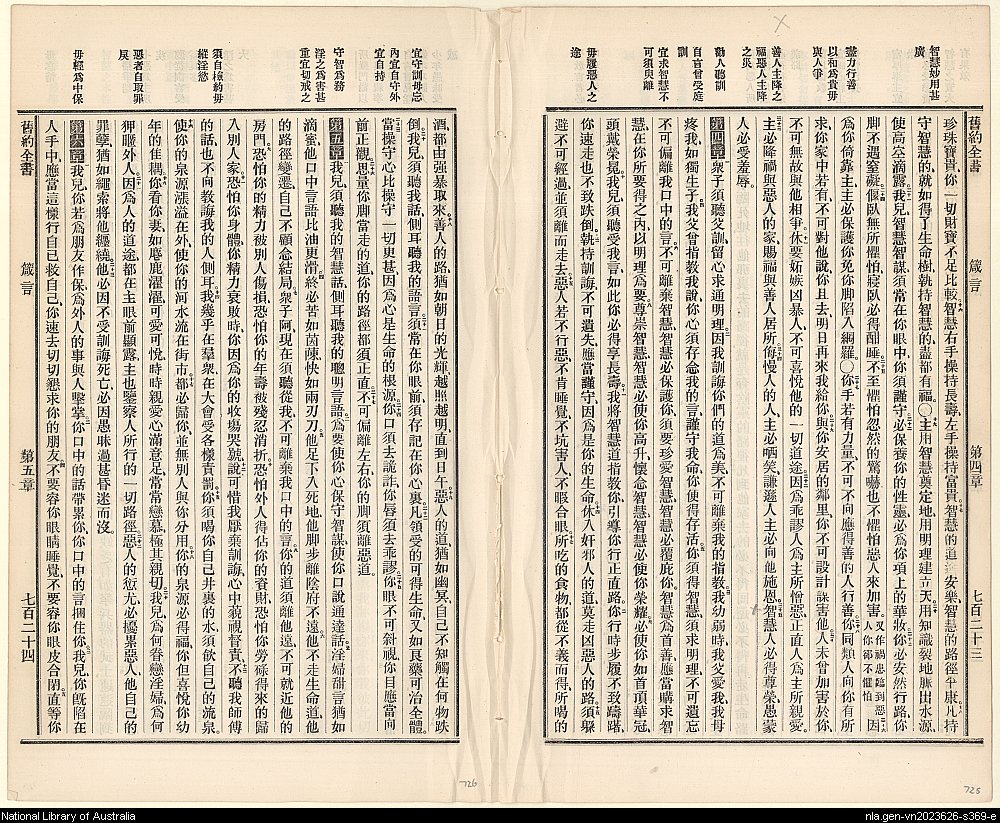 智慧妙用甚
廣
盡力行善
以和為貴毋
與人爭
善人主降之
福惡人主降
之災
勸人聽訓
自言曾受庭
訓
宜求智慧不
可須臾離
毋履惡人之
途
舊約全書 箴言 第四章 七百二十三
珍珠寶貴你一切財寶不足比較智慧右手操持長壽左手操持富貴智慧的道途安樂智慧的路徑平康凡持
守智慧的就如得了生命樹執持智慧的盡都有福〇主用智慧奠定地用明理建立天用知識裂地脈出水源
使高空滴露我兒智慧智謀須當在你眼中你須謹守必保養你的性靈必為你項上的華妝你必安然行路你
脚不遇窒礙偃臥無所懼怕寢臥必得酣睡不至懼怕忽然的驚嚇也不懼怕惡人來加害又作禍患臨到惡人你都不懼怕因
為你倚靠主主必保護你免你脚陷入網羅〇你手若有力量不可不向應得善的人行善你同類人向你有所
求你家中若有不可對他說你且去明日再來我給你與你安居的鄰里你不可設計謀害他人未曾加害於你
不可無故與他相爭休要妬嫉凶暴人不可喜悅他的一切道途因為乖謬人為主所憎惡正直人為主所親愛
主必降禍與惡人的家賜福與善人居所侮慢人的人主必哂笑謙遜人主必向他施恩智慧人必得尊榮愚蒙
人必受羞辱
第四章衆子須聽父訓留心求通明理因我訓誨你們的道為美不可離棄我的指教我幼弱時我父愛我我母
疼我如獨生子我父曾指教我說你心須存念我的言謹守我命你便得存活你須得智慧須求明理不可遺忘
不可偏離我口中的言不可離棄智慧智慧必保護你須要珍愛智慧智慧必覆庇你智慧為首善應當購求智
慧在你所要得之內以明理為要尊崇智慧智慧必使你高升懷念智慧智慧必使你榮耀必使你如首頂華冠
頭戴榮冕我兒須聽受我言如此你必得享長壽我將智慧道指教你引導你行正直路你行時步履不致躊躇
你速走也不致跌倒執持訓誨不可遺失應當謹守因為是你的生命休入奸邪人的道莫走凶惡人的路須躲
避不可經過並須離而走去惡人若不行惡不肯睡覺不坑害人不暇合眼所吃的食物都從不義而得所喝的
宜守訓毋忘
內宜自守外
宜自持
守智為務
淫之為害甚
重宜切戒之
須自檢約毋
縱淫慾
惡者自取罪
戾
毋輕為中保
酒都由強暴取來善人的路猶如朝日的光輝越照越明直到日午惡人的道猶如幽冥自己不知觸在何物跌
倒我兒須聽我話側耳聽我的語言須常在你眼前須存記在你心裏凡領受的可得生命又如良藥可治全體
當操守心比操守一切更甚因為心是生命的根源你口須去詭詐你唇須去乖謬你眼不可斜視你目應當向
前正觀思量你脚當走的道你的路徑都須正直不可偏離左右你的脚須離惡道
第五章我兒須聽我的智慧話側耳聽我的聰明言語為要使你心保守智謀使你口說通達話淫婦甜言猶如
滴蜜他口中言語比油更滑終必苦如茵蔯快如兩刃刀他足下入死地他脚步離陰府不遠他不走生命道他
的路徑變遷自己不顧念結局衆子阿現在須聽從我不可離棄我口中的言你的道須離他遠不可就近他的
房門恐怕你的精力被別人傷損恐怕你的年壽被殘忍消折恐怕外人得佔你的資財恐怕你勞碌得來的歸
入別人家恐怕你身體你精力衰敗時你因為你的收塲哭號說可惜我厭棄訓誨心中藐視督責不聽我師傅
的話也不向教誨我的人側耳我幾乎在羣衆在大會受各樣責罰你須喝你自己井裏的水須飲自己的流泉
使你的泉源漲溢在外使你的河水流在街市都必歸你並無別人與你分用你的泉源必得福你但喜悅你幼
年的佳耦你看你妻如麀鹿濯濯可愛可悅時時親愛心滿意足常常戀慕極其親切我兒為何眷戀淫婦為何
狎暱外人因為人的道途都在主眼前顯露主也鑒察人所行的一切路徑惡人的愆尤必擾累惡人他自己的
罪孽猶如繩索將他纏繞他必因不受訓誨死亡必因愚昧過甚昏迷而沒
第六章我兒你若為朋友作保為外人的事與人擊掌你口中的話帶累你你口中的言捆住你我兒你旣陷在
人手中應當這樣行自已救自己你速去切切懇求你的朋友不要容你眼睛睡覺不要容你眼皮合閉直等你
舊約全書 箴言 第五章 七百二十四
726
725
National Library of Australia
nla.gen-vn2023626-s369-e